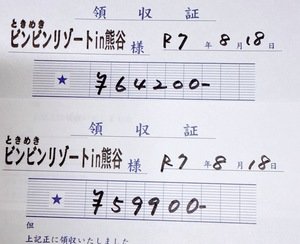 領収証
ときめき
ピンピンリゾートin熊谷 様 R7年8月18日
★ ¥64200-
領収証
ときめき
ピンピンリゾートin熊谷 様 R7年8月18日
★ ¥59900-
但
上記正に領収いたしました